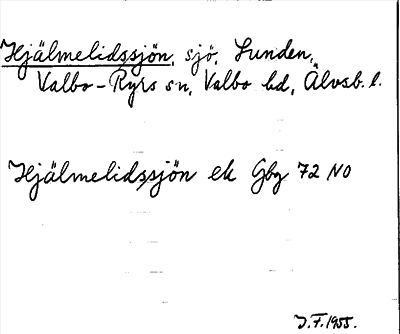 Hjälmelidssjön, sjö, Sunden,
Valbo-Ryrs sn, Valbo hd, Älvsb. l.
Hjälmelidssjön ek Gbg 72 NO
J.F. 1955.